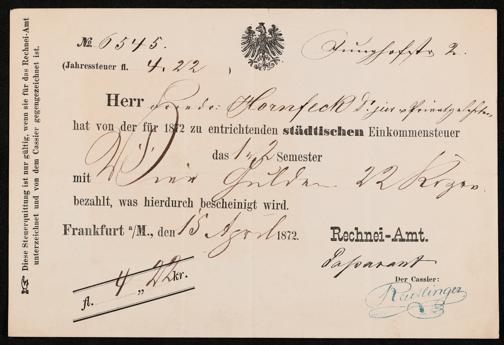 № 6545.
Junghofstr. 2.
(Jahressteuer fl. 4.22
Herr Hornfeck
hat von der für 1872 zu entrichtenden städtischen Einkommensteuer
das 1 & 2 Semester
mit Vier Gulden 22 Krzer.
bezahlt, was hierdurch bescheinigt wird.
Frankfurt a/M., den 15 April 1872.
Rechnei-Amt.
Passavant
Der Cassier:
Reutlinger
fl. 4 „ 22 kr.
Diese Steuerquittung ist nur gültig, wenn sie für das Rechnei-Amt
unterzeichnet und von dem Cassier gegengezeichnet ist.